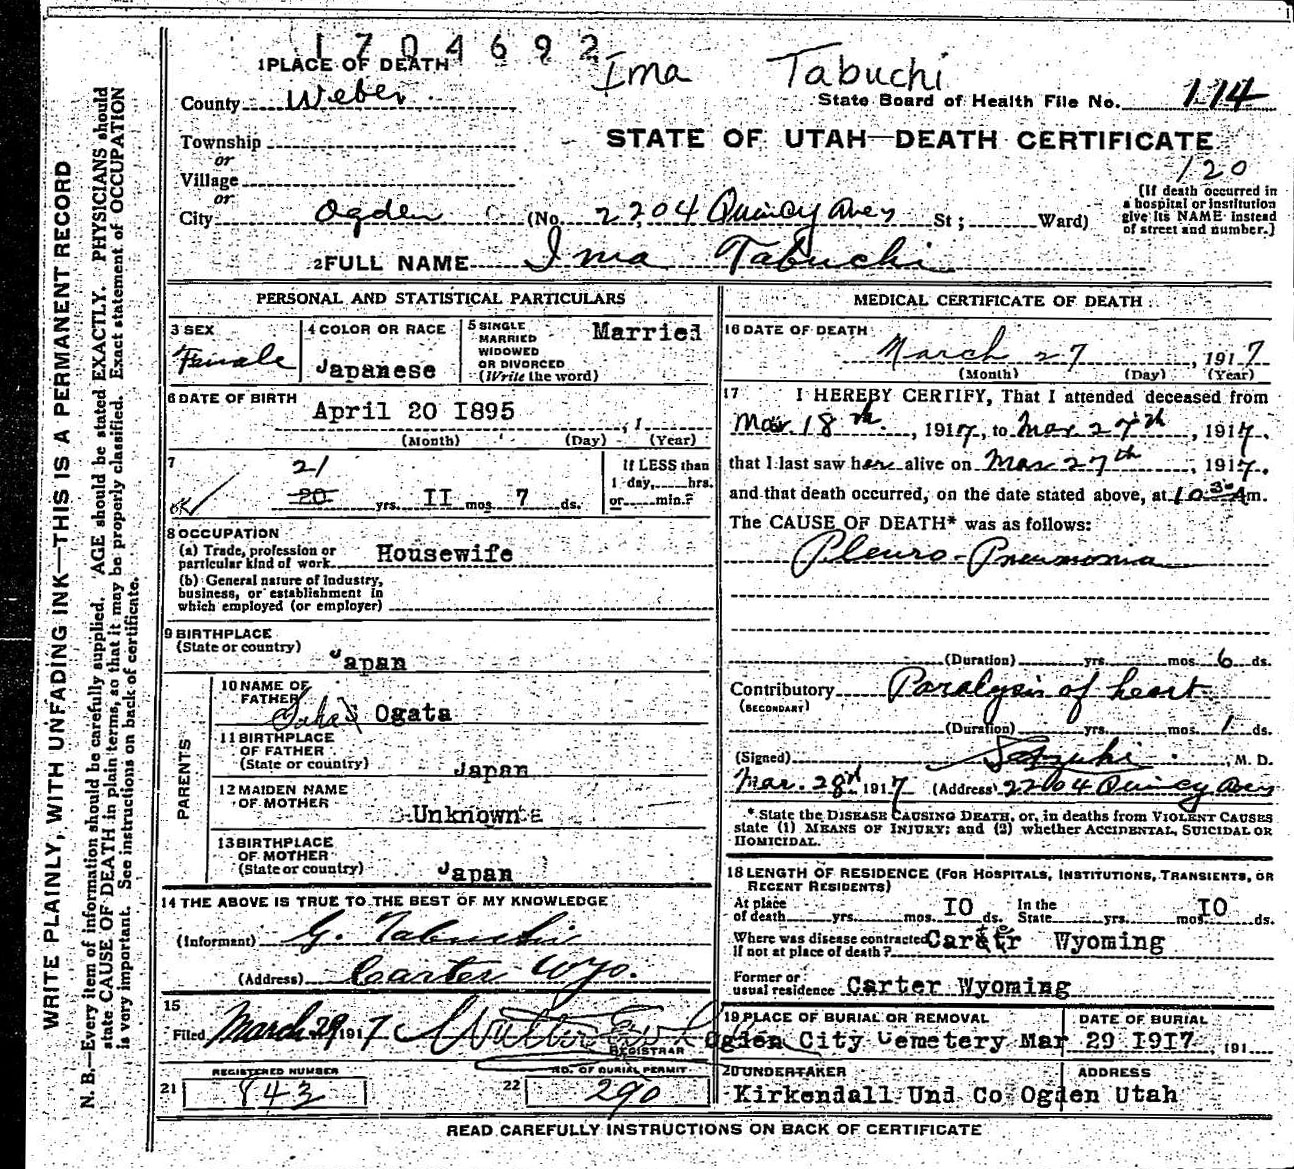 1704692
Ima Tabuchi
1 PLACE OF DEATH
County Weber
State Board of Health File No. 114
Township
or
Village
or
STATE OF UTAH—DEATH CERTIFICATE
120
City Ogden (No. 2204 Quincy Ave St; Ward)
(If death occurred in
a hospital or institution
give its NAME instead
of street and number.)
2 FULL NAME Ima Tabuchi
PERSONAL AND STATISTICAL PARTICULARS
3 SEX
Female
4 COLOR OR RACE
Japanese
5 SINGLE
MARRIED
WIDOWED
OR DIVORCED
(Write the word)
Married
6 DATE OF BIRTH
April 20 I895
, 1
(Month) (Day) (Year)
7
21
20 yrs. II mos. 7 ds.
If LESS than
1 day, hrs.
or min.?
8 OCCUPATION
(a) Trade, profession or
particular kind of work
Housewife
(b) General nature of Industry,
business, or establishment in
which employed (or employer)
9 BIRTHPLACE
(State or country)
Japan
PARENTS
10 NAME OF
FATHER
Ogata
11 BIRTHPLACE
OF FATHER
(State or country)
Japan
12 MAIDEN NAME
OF MOTHER
Unknown
13 BIRTHPLACE
OF MOTHER
(State or country)
Japan
14 THE ABOVE IS TRUE TO THE BEST OF MY KNOWLEDGE
(Informant) G. Tabuchi
(Address) Carter Wyo.
15
Filed March 29 1917
REGISTRAR
REGISTERED NUMBER
21 843
NO. OF BURIAL PERMIT
22 290
MEDICAL CERTIFICATE OF DEATH
16 DATE OF DEATH
March 27, 1917
(Month) (Day) (Year)
17 I HEREBY CERTIFY, That I attended deceased from
Mar. 18th, 1917, to Mar. 27th, 1917.
that I last saw her alive on Mar 27th, 1917.
and that death occurred, on the date stated above, at 10 30 Am.
The CAUSE OF DEATH* was as follows:
Pleuro-Pneumonia
(Duration) yrs. mos. 6 ds.
Contributory Paralysis of heart
(SECONDARY)
(Duration) yrs. mos. 1 ds.
(Signed) , M. D.
Mar. 28 1917 (Address) 2204 Quincy Ave
* State the DISEASE CAUSING DEATH, or, in deaths from VIOLENT CAUSES
state (1) MEANS OF INJURY; and (2) whether ACCIDENTAL, SUICIDAL OR
HOMICIDAL.
18 LENGTH OF RESIDENCE (FOR HOSPITALS, INSTITUTIONS, TRANSIENTS, OR
RECENT RESIDENTS)
At place
of death yrs. mos. IO ds.
In the
State yrs. mos. IO ds.
Where was disease contracted
if not at place of death? Carter Wyoming
Former or
usual residence Carter Wyoming
19 PLACE OF BURIAL OR REMOVAL
Ogden City Cemetery
DATE OF BURIAL
Mar 29 I9I7, 191
20 UNDERTAKER
Kirkendall Und Co
ADDRESS
Ogden Utah
READ CAREFULLY INSTRUCTIONS ON BACK OF CERTIFICATE
WRITE PLAINLY, WITH UNFADING INK—THIS IS A PERMANENT RECORD
N. B.—Every item of information should be carefully supplied. AGE should be stated EXACTLY. PHYSICIANS should
state CAUSE OF DEATH in plain terms, so that it may be properly classified. Exact statement of OCCUPATION
is very important. See instructions on back of certificate.